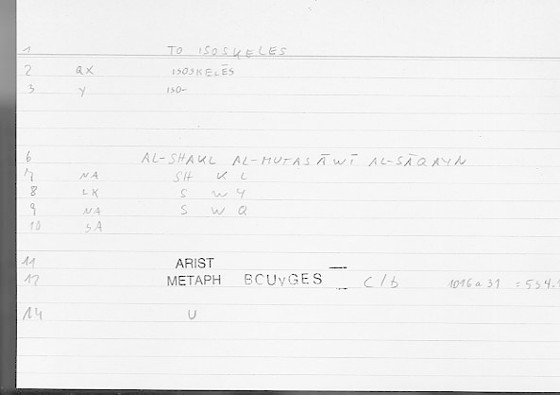 1 TO ISOSKELES
2 QX ISOSKELĒS
3 Y ISO-
6 AL-SHAKL AL-MUTASĀWĪ AL-SĀQAYN
7 NA SH K L
8 LX S W Y
9 NA S W Q
10 SA
11 ARIST
12 METAPH BOUyGES C/b 1016a31 = 534.
14 U